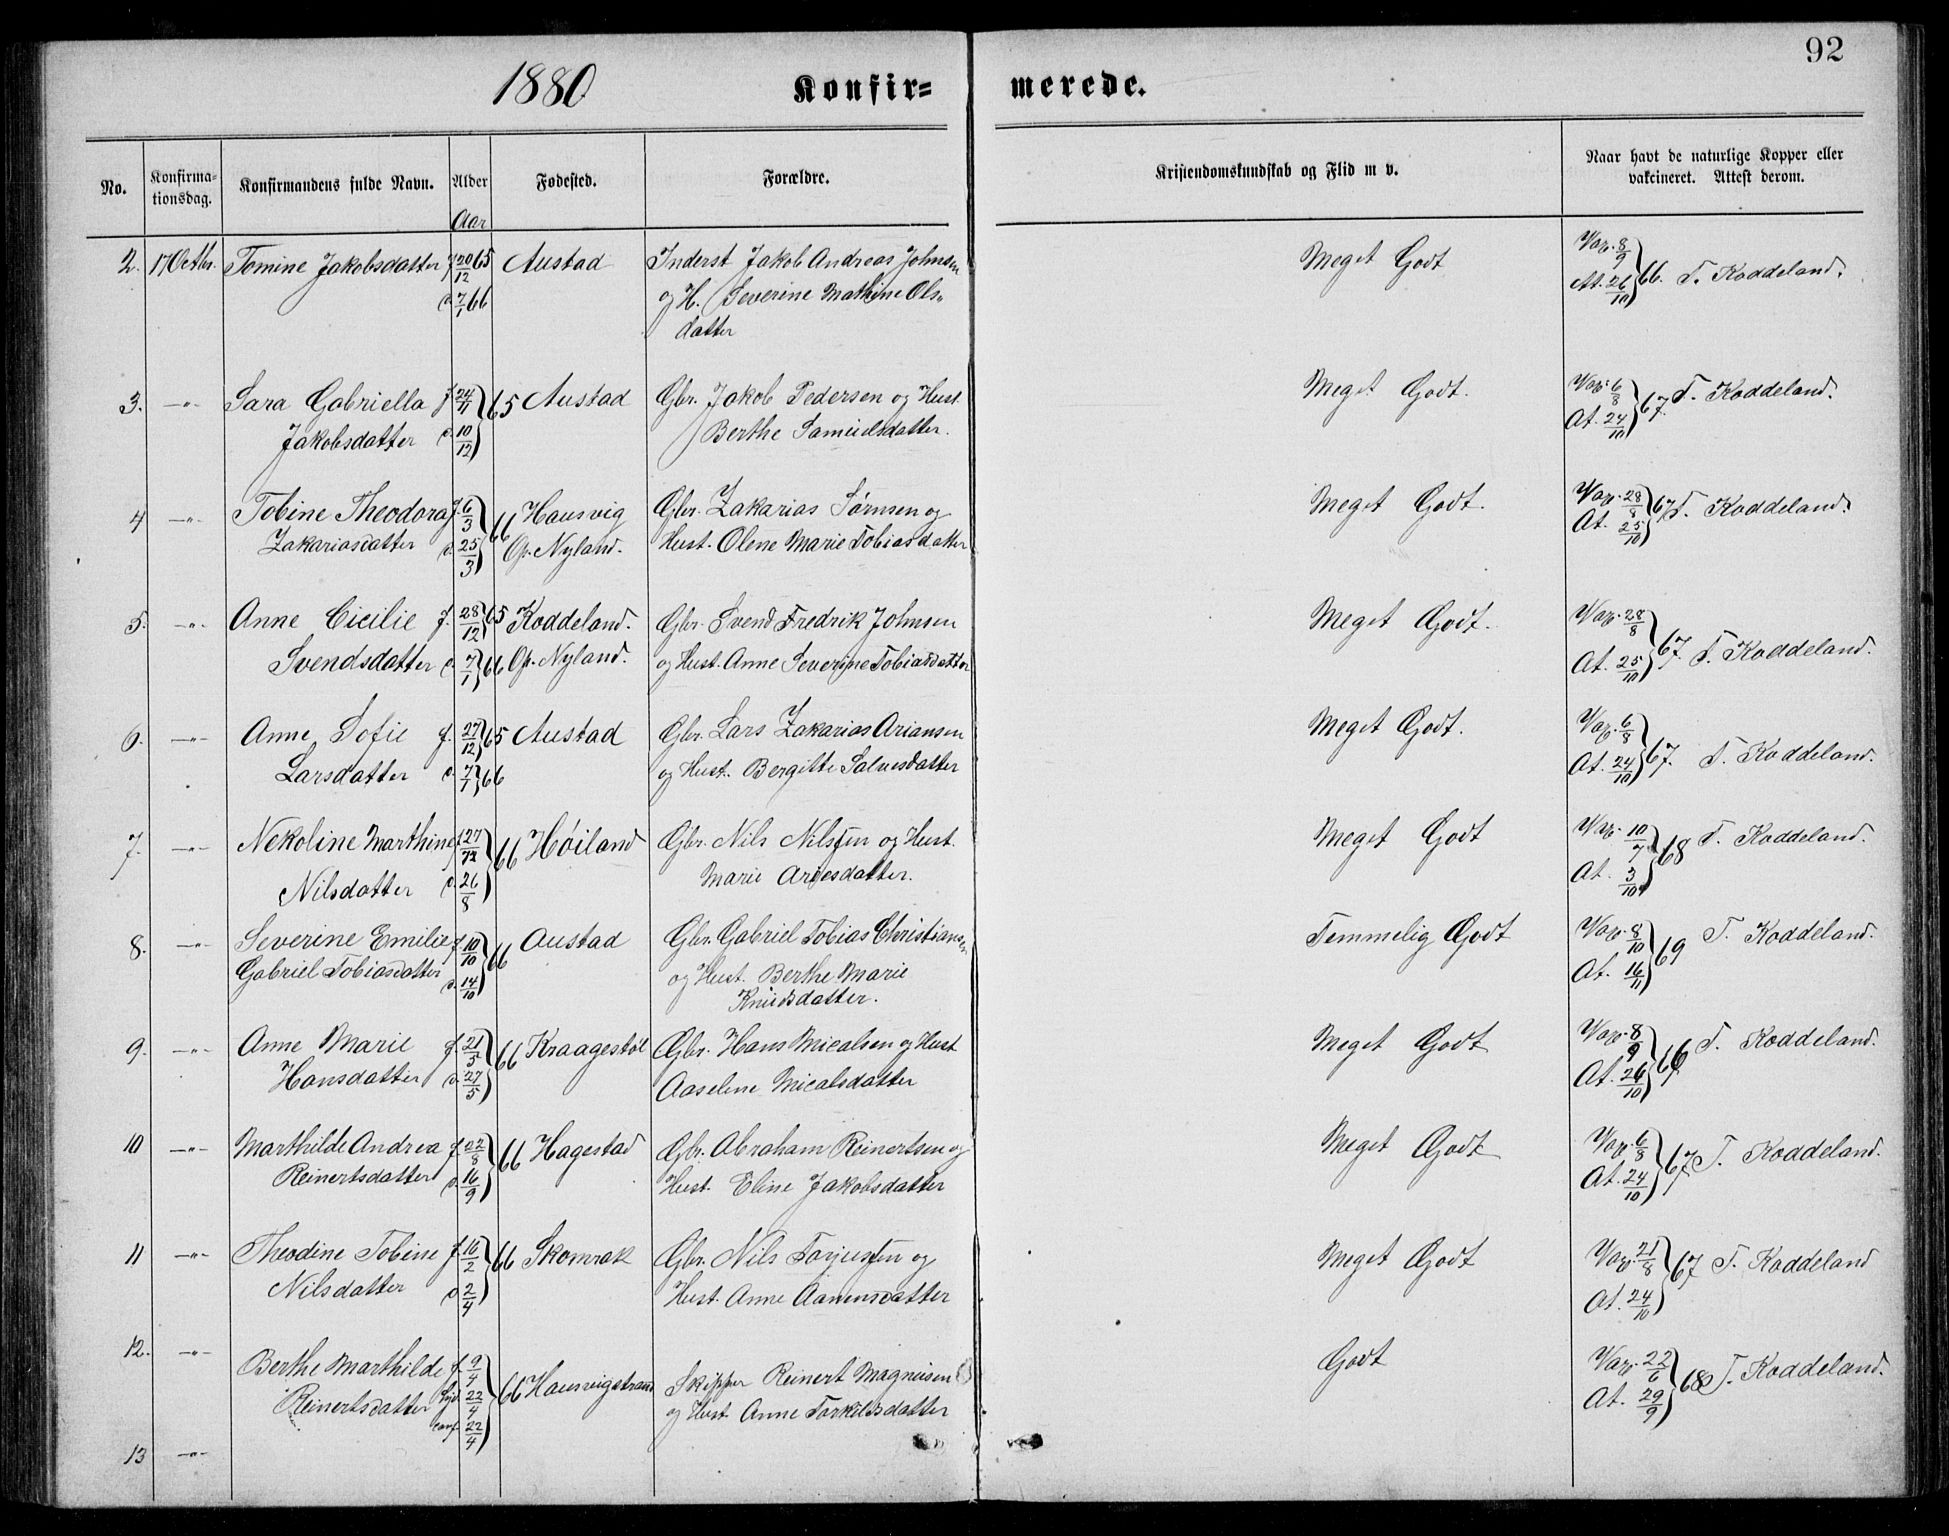 92
1880 Konfir= merede.
No. Konfirma-tionsdag. Konfirmandens fulde Navn. Alder Fødested. Forældre. Kristendomskundskab og Flid m v. Naar havt de naturlige Kopper eller vakcineret. Attest derom.
Aar
2. 17 Octbr. Tomine Jakobsdatter f 20/12 65 Austad Inderst Jakob Andreas Johnsen Meget Godt Vac. 8/9
d. 7/1 66 og H. Severine Mathine Ols- At. 26/10 66. T. Koddeland.
datter
3. —"— Sara Gabriella f 24/11 65 Austad Gbr. Jakob Pedersen og Hust. Meget Godt. Vac. 6/8 67. T. Koddeland.
Jakobsdatter d. 10/12 Berthe Samuelsdatter. At. 24/10
4 —"— Tobine Theodora f. 6/3 66 Hausvig Gbr. Zakarias Sørnsen og Meget Godt. Vac. 28/8 67 T. Koddeland.
Zakariasdatter d. 25/3 Op. Nyland. Hust. Olene Marie Tobiasdatter At. 25/10
5. —"— Anne Cicilie f. 28/12 65 Koddeland. Gbr. Svend Fredrik Johnsen Meget Godt. Vac. 28/8
Svendsdatter d. 7/1 66 Op. Nyland. og Hust. Anne Severine Tobiasdatter At. 25/10 67. T. Koddeland.
6. —"— Anne Sofie f. 27/12 65 Austad Gbr. Lars Zakarias Ariansen Meget Godt. Vac. 6/8
Larsdatter d. 7/1 66 og Hust. Bergitte Salvesdatter At. 24/10 67. T. Koddeland.
7. —"— Nekoline Marthine f 27/72 66 Høiland Gbr. Nils Nilssen og Hust. Meget Godt Vac. 10/7 68 T. Koddeland.
Nilsdatter d. 26/8 Marie Arnesdatter. At. 3/10
8. —"— Severine Emilie f. 10/10 66 Austad Gbr. Gabriel Tobias Christiansen Temmelig Godt Vac. 8/10 69 T. Koddeland.
Gabriel Tobiasdatter d. 14/10 og Hust. Berthe Marie At. 16/11
Knudsdatter.
9. —"— Anne Marie f. 21/5 66 Kraagestøl Gbr. Hans Micalsen og Hust Meget Godt Vac. 8/9 66 T. Koddeland.
Hansdatter d. 27/5 Aaselene Micalsdatter At. 26/10
10 —"— Marthilde Andrea f. 22/8 66 Hagestad Gbr. Abraham Reinertsen og Meget Godt Vac. 6/8 67 T. Koddeland.
Reinertsdatter d. 16/9 Hust. Eline Jakobsdatter At. 24/10
11 —"— Theodine Tobine f. 16/2 66 Skomrak Gbr. Nils Torjussen og Meget Godt Vac. 21/8 67 T. Koddeland
Nilsdatter d 2/4 Hust. Anne Aanensdatter At. 24/10
12. —"— Berthe Marthilde f. 9/4 66 Hausvigstrand Skipper Reinert Magnusen Godt Vac. 22/6 68 T. Koddeland.
Reinertsdatter 22/4 og Hust. Anne Torkildsdatter At. 29/9
22/4
13 —"—